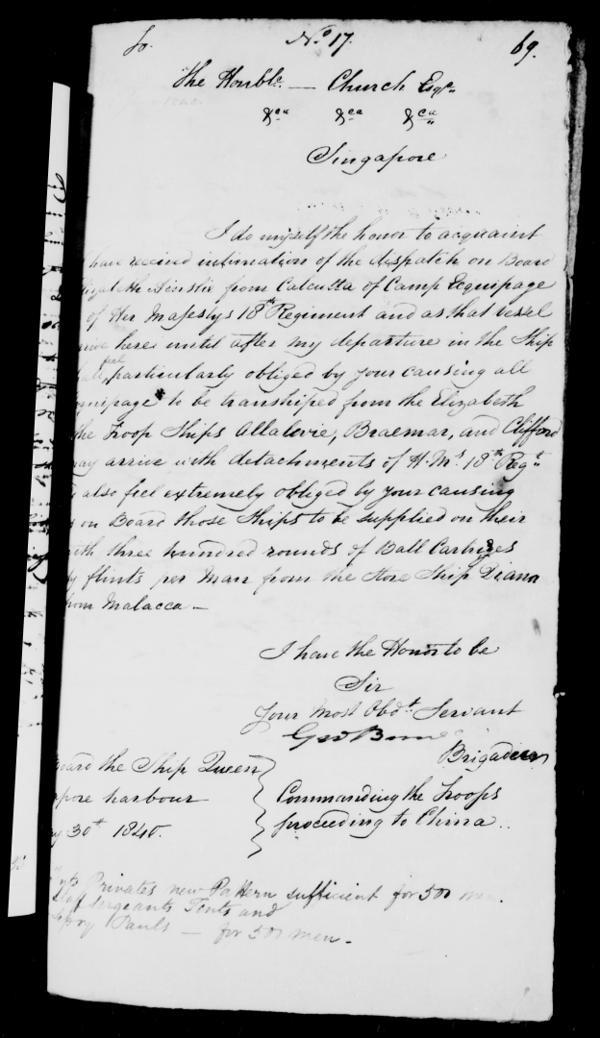 No. 17.
69.
The Honble. — Church Esqre.
&ca &ca &ca
Singapore
I do myself the honor to acquaint
have received intimation of the despatch on Board
the from Calcutta of Camp Equipage
of Her Majestys 18th Regiment and as that vessel
here until after my departure in the Ship
feel
particularly obliged by your causing all
to be transhiped from the Elizabeth
the Troop Ships Allalevie, Braemar, and Clifford
may arrive with detachments of H. Ms 18th Regt
also feel extremely obliged by your causing
on Board those Ships to be supplied on their
with three hundred rounds of Ball Cartriges
flints per Man from the Store Ship Diana
from Malacca —
I have the Honor to be
Sir
Your Most Obdt. Servant
Brigadier
Commanding the Troops
proceeding to China..
Board the Ship Queen
harbour
30th 1840.
Privates new Pattern sufficient for 500 men.
Sergeants Tents and
Pauls — for 500 men.